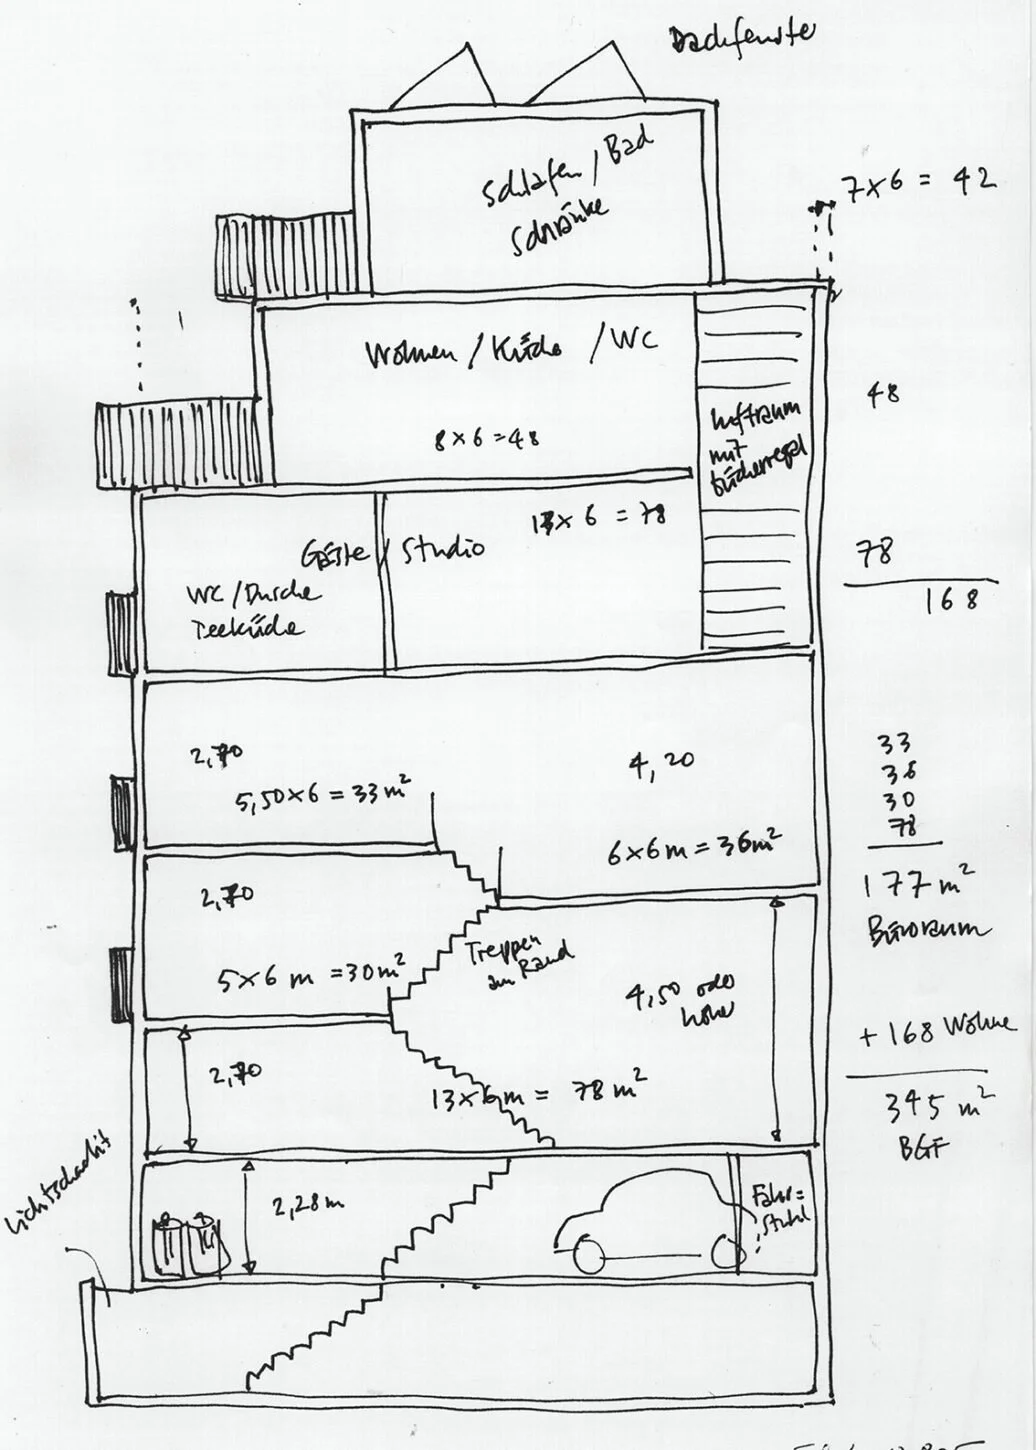 Dachfenster
Schlafen / Bad
Schränke
7 x 6 = 42
Wohnen / Küche / WC
8 x 6 = 48
48
Luftraum
mit
Bücherregal
13 x 6 = 78
Gäste / Studio
WC / Dusche
Teeküche
78
168
2,70
5,50 x 6 = 33 m²
4,20
6 x 6 m = 36 m²
33
36
30
78
177 m²
Büroraum
2,70
5 x 6 m = 30 m²
Treppen
am Rand
4,50 oder
höher
+ 168 Wohne
345 m²
BGF
2,70
13 x 6 m = 78 m²
Lichtschacht
2,28 m
Fahr=
stuhl